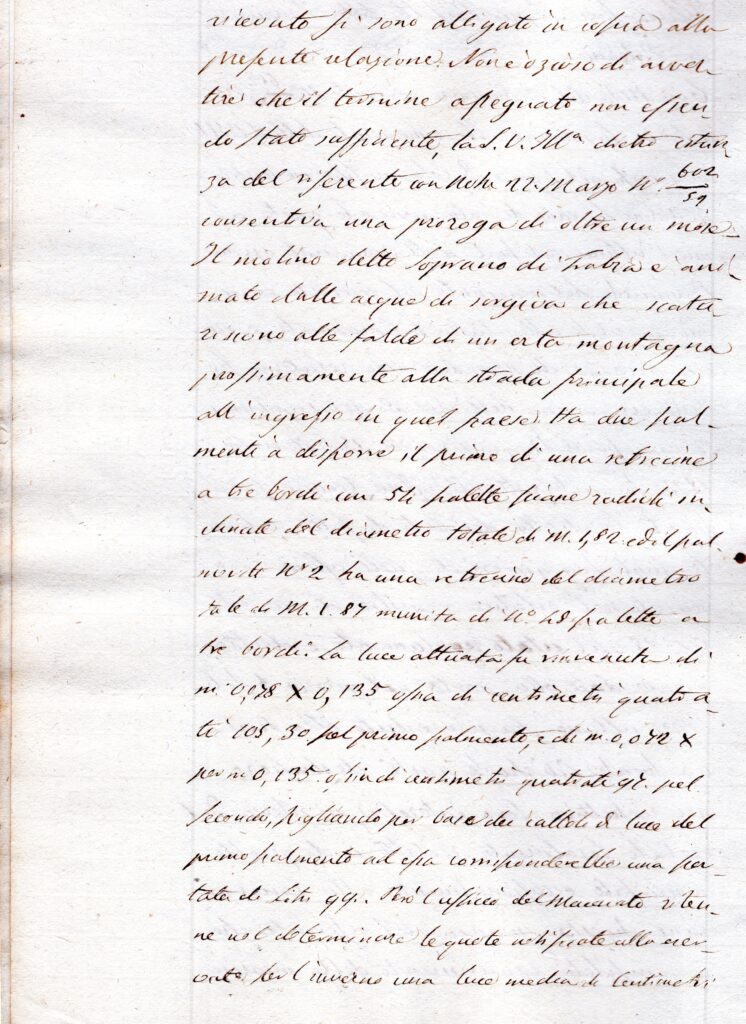 ricevuto si sono alligate in copia alla
presente relazione. Non è ozioso di avver-
tire che il termine assegnato non essen-
do stato sufficiente, la S. V. Ill.ª dietro istan-
za del riferente con Nota 22 Marzo N.° 602/59
consentiva una proroga di oltre un mese.
Il molino detto Soprano di Trabia è ani-
mato dalle acque di sorgiva che scatu-
riscono alle falde di un erta montagna
prossimamente alla strada principale
all'ingresso in quel paese. Ha due pal-
menti a disporre il primo di una retrecine
a tre bordi con 54 palette piane radiali in-
clinate del diametro totale di M. 1,82 ed il pal-
mento N° 2 ha una retrecine del diametro
tale di M. 1.87 munita di N.° 48 palette a
tre bordi. La luce attuata fu rinvenuta di
m. 0,078 X 0,135 ossia di centimetri quadra-
ti 105,30 pel primo palmento, e di m. 0,072 X
per m 0,135 ossia di centimetri quadrati 97. pel
secondo, pigliando per base dei calcoli la luce del
primo palmento ad essa corrisponderebbe una por-
tata di Litri 99. Però l'ufficio del Macinato riten-
ne nel determinare le quote notificate allo eser-
cente per l'inverno una luce media di Centimetri